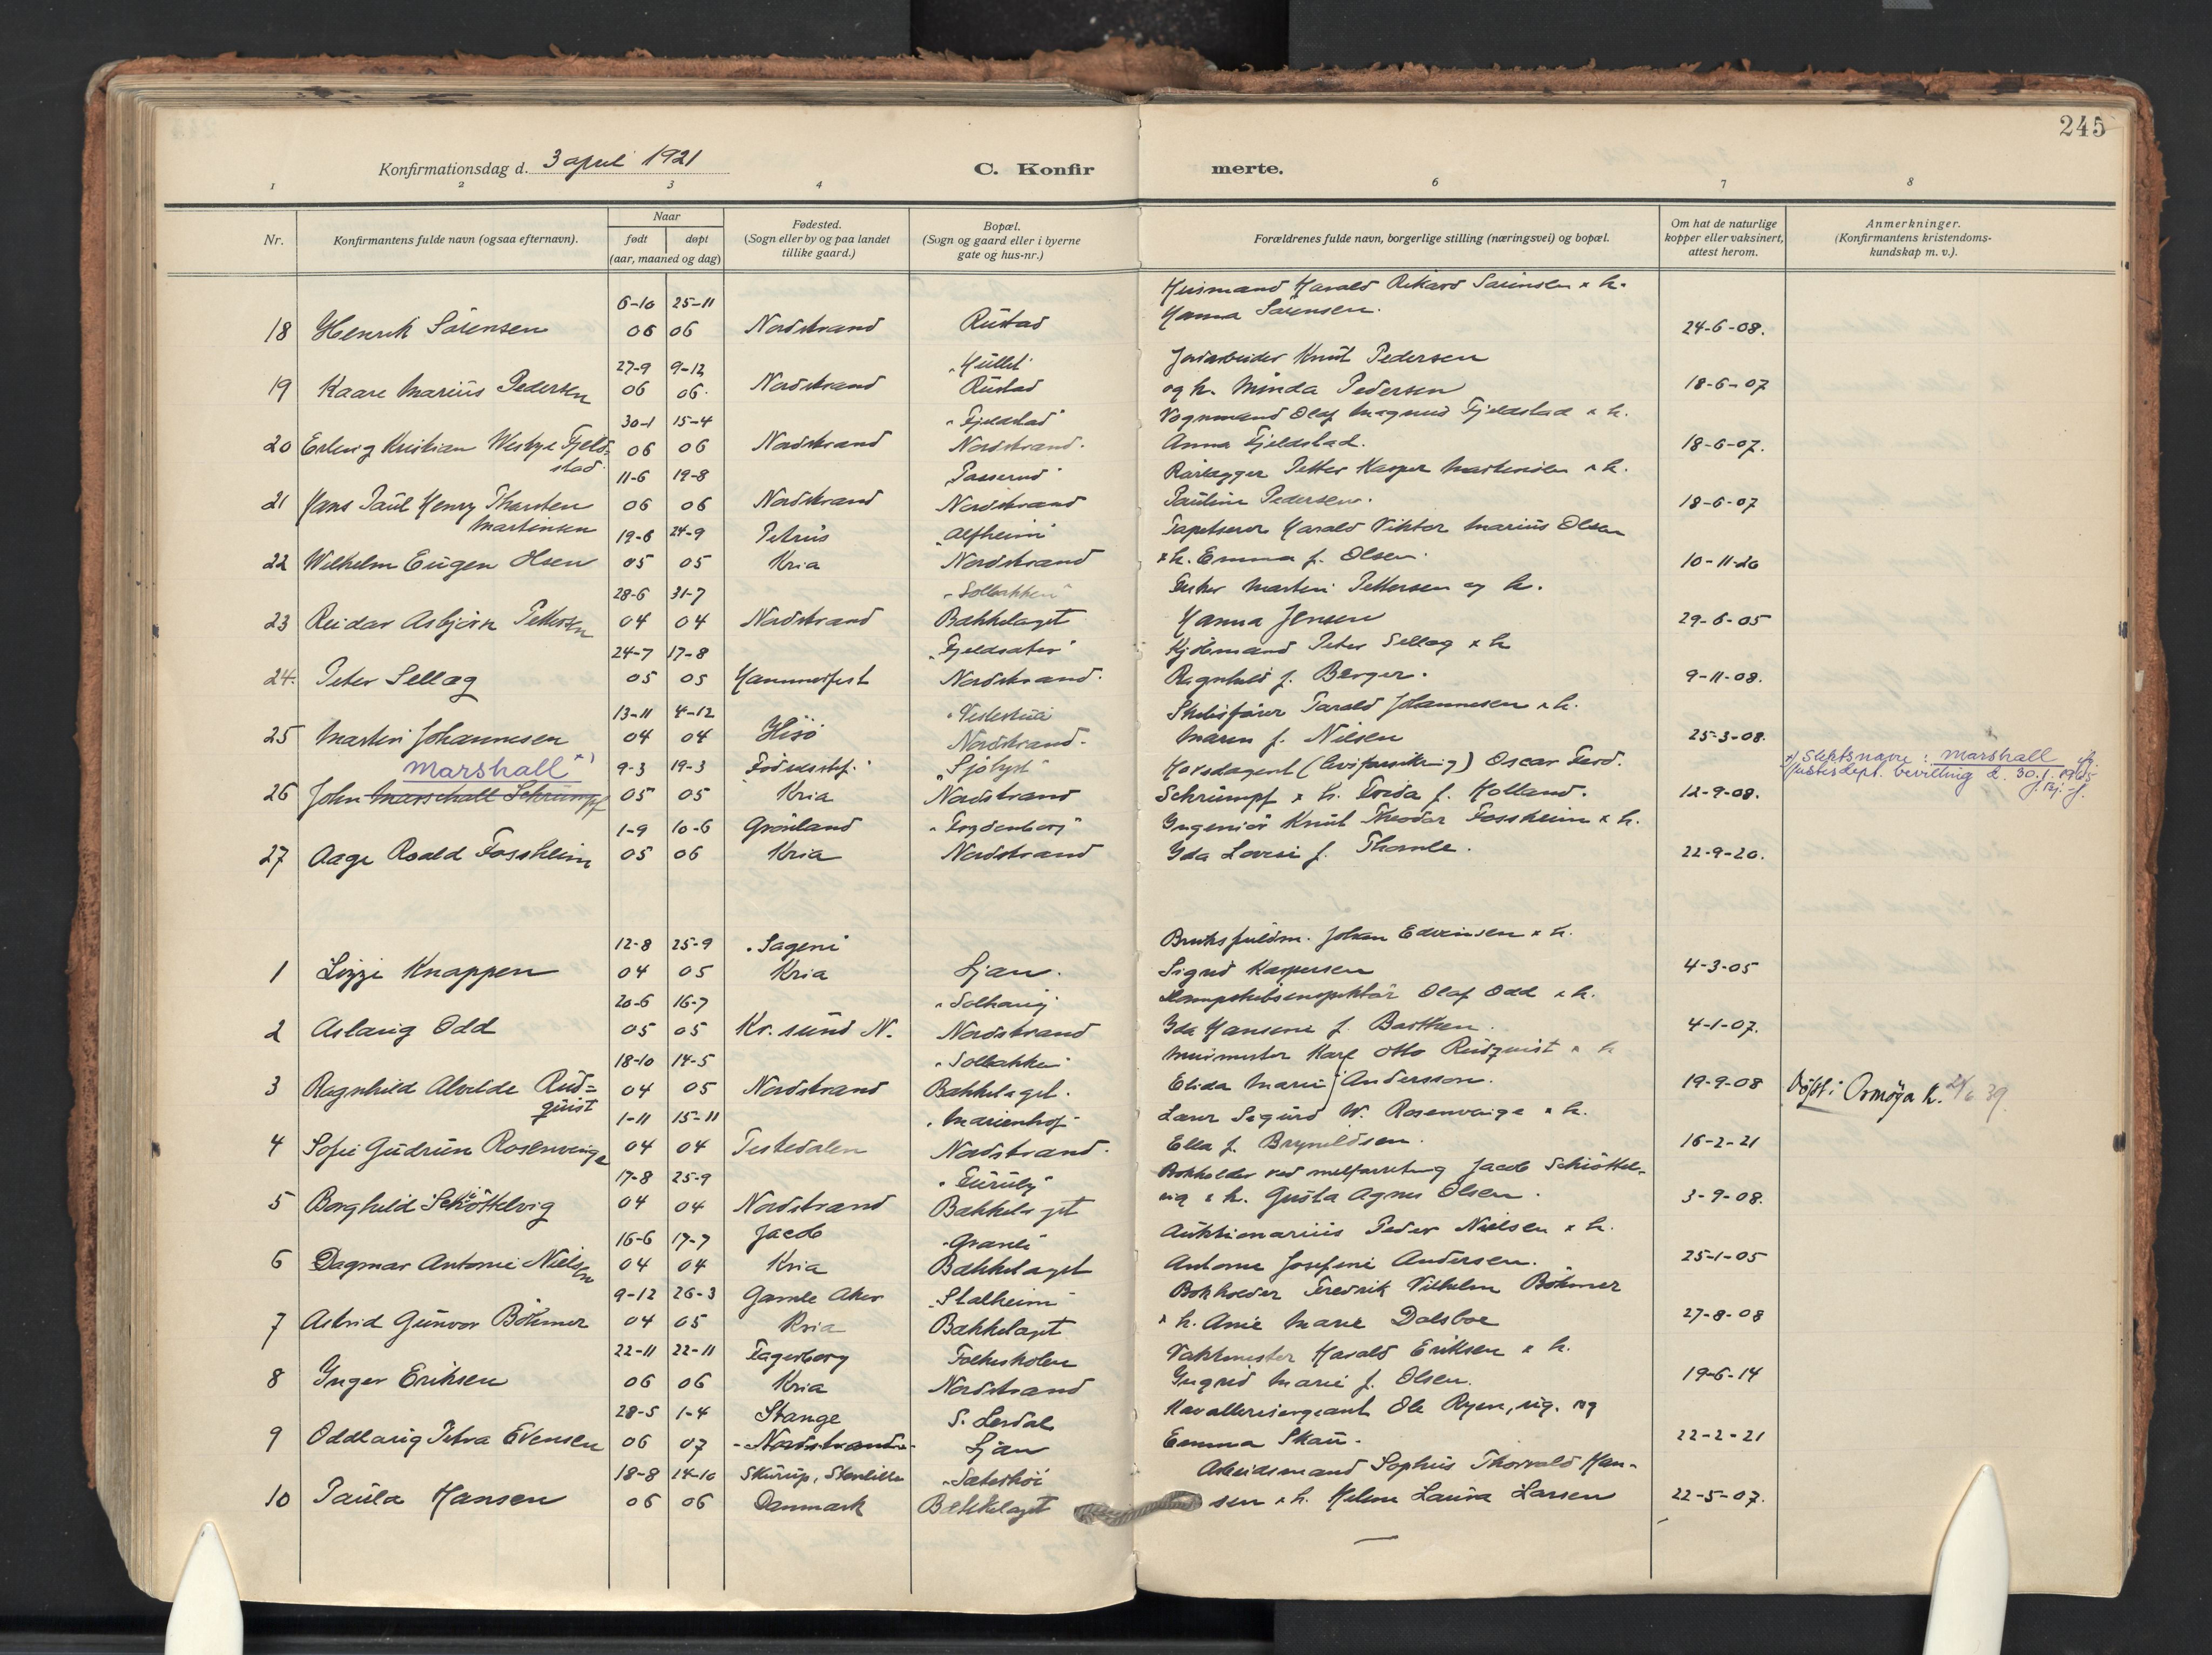 245
Konfirmationsdag d. 3 april 1921
C. Konfir merte.
1 2 3 4 6 7 8
Nr. Konfirmantens fulde navn (ogsaa efternavn). Naar født døpt (aar, maaned og dag) Fødested. (Sogn eller by og paa landet tillike gaard.) Bopæl. (Sogn og gaard eller i byerne gate og hus-nr.) Forældrenes fulde navn, borgerlige stilling (næringsvei) og bopæl. Om hat de naturlige kopper eller vaksinert, attest herom. Anmerkninger. (Konfirmantens kristendoms-kundskap m. v.).
6-10 25-11 Husmand Harald Rikard Sørensen x h.
18 Henrik Sörensen 06 06 Nordstrand Rustad Hanna Sörensen. 24-6-08.
27-9 9-12 Jordarbeider Knut Pedersen
19 Kaare Marius Pedersen 06 06. Nordstrand Rustad og h. Minda Pedersen 18-6-07
30-1 15-4 "Fjeldstad" Vognmand Olaf Magnus Fjeldstad x h.
20 Erling Kristian Wesbye Fjeld= 06 06 Nordstrand Nordstrand. Anna Fjeldstad. 18-6-07.
stad. 11-6 19-8 Rørlægger Petter Kasper Martinsen x h.
21 Hans Paul Henry Thorsten 06 06 Nordstrand Nordstrand Pauline Pedersen. 18-6-07
Martinsen 19-6 24-9 Petrus "Alfheim" Tapetserer Harald Viktor Marius Olsen
22 Wilhelm Eugen Olsen 05 05 Kria Nordstrand x h. Emma f. Olsen. 10-11-20
28-6 31-7 "Solbakken" Martin Pettersen og h.
23 Reidar Asbjørn Pettersen 04 04 Nordstrand Bækkelaget Hanna Jensen 29-6-05
24-7 17-8 "Fjeldsæter" Kjöbmand Peter Sellæg x h
24. Peter Sellæg 05 05 Hammerfest Nordstrand. Ragnhild f. Berger. 9-11-08.
13-11 4-12 Skibsfører Tarald Johannesen x h.
25 Martin Johannesen 04 04 Hisö Nordstrand. Maren f. Nielsen 25-3-08.
Marshall x) 9-3 19-3 Födselsstif. "Sjölyst" Oscar Ferd. x) Slektsnavn: Marshall
26 John Marschall Schrumpf 05 05 Kria Nordstrand Schrumpf x h. Frida f. Holland. 12-9-08. Justisdept. bevilling d. 30.1.1965
1-9 10-6 Grönland Ingeniör Knut Theodor Fossheim x h.
27 Aage Roald Fossheim 05 06 Kria Nordstrand Ida Lovise f. Thomle. 22-9-20.
12-8 25-9 "Sagene" Johan Edvinsen x h.
1 Lizzi Knappen 04 05 Kria Ljan. Sigrid Kaspersen 4-3-05
20-6 16-7 "Solhaug" Olaf Odd x h.
2 Aslaug Odd 05 05 Kr. sund N. Nordstrand Ida Hansine f. Barthen. 4-1-07.
18-10 14-5 "Solbakken" Murmester Karl Otto Rudquist x h
3 Ragnhild Alvilde Rud= 04 05 Nordstrand Bækkelaget. Elida Marie Andersson. 19-9-08 Döpt i Ormöya k.
quist 1-11 15-11 "Marienhof" Lærer Sigurd W. Rosenvinge x h.
4 Sofie Gudrun Rosenvinge 04 04 Testedalen Nordstrand. Ella f. Brynildsen. 16-2-21
17-8 25-9 "Furuly" Bokholder ved melforretning Jacob Schiöttel-
5 Borghild Schöttelvig 04 04 Nordstrand Bækkelaget vig x h. Gusta Agnes Olsen. 3-9-08.
16-6 17-7 Jacob "Granli" Auktionarius Peder Nielsen x h.
6 Dagmar Antonie Nielsen 04 04 Kria Bækkelaget Antonie Josefine Andersen. 25-1-05
9-12 26-3 Gamle Aker "Stalheim" Bokholder Fredrik Vilhelm Böhmer
7 Astrid Gunvor Böhmer 04 05 Kria Bækkelaget x h. Anie Marie Dalsboe 27-8-08
22-11 22-11 Fagerborg Folkeskolen Vaktmester Harald Eriksen x h.
8 Inger Eriksen 06 06 Kria Nordstrand Ingrid Marie f. Olsen. 19-6-14
28-5 1-4 Stange S. Lerdal Kavallerisergeant Ole Ryen, ug. og
9 Oddlaug Petra Evensen 06 07 Nordstrand Ljan Emma Skau. 22-2-21
18-8 14-10 Skurup, Stenlille Arbeidsmand Sophus Thorvald Han-
10 Paula Hansen 06 06 Danmark Bækkelaget sen x h. Helene Laura Larsen 22-5-07.